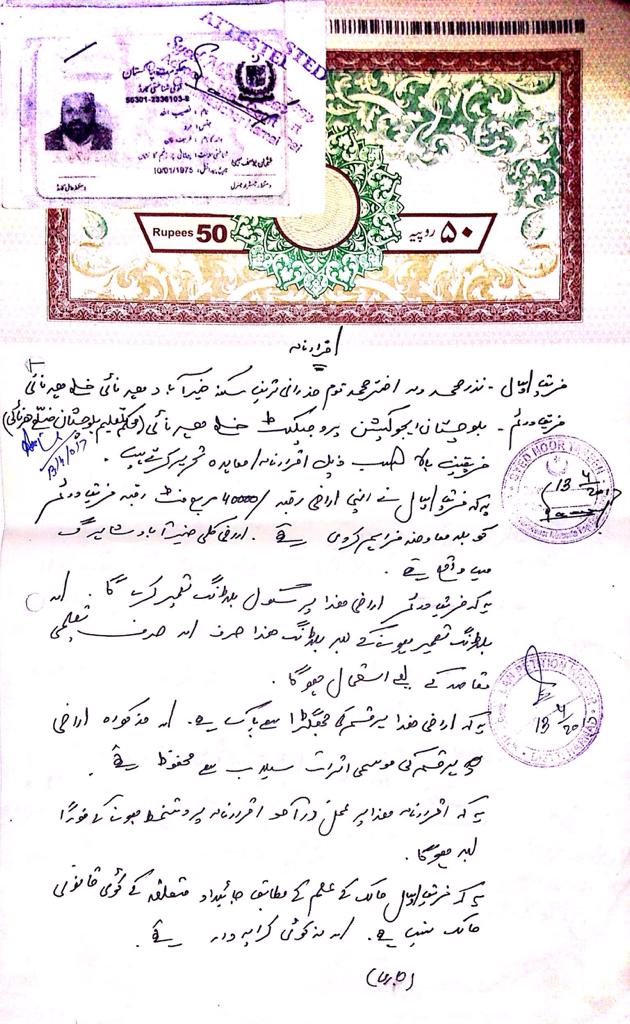 ATTESTED
حکومت پاکستان
قومی شناختی کارڈ
56301-2336103-3
نام: نصیب اللہ
10/01/1975
Rupees 50
۵۰ روپیہ
اقرارنامہ
فریق اول - نذر محمد ولد اختر محمد قوم سکنہ خیر آباد ہرنائی ضلع ہرنائی
فریق دوئم - بلوچستان ایجوکیشن پروجیکٹ ضلع ہرنائی (محکمہ تعلیم بلوچستان ضلع ہرنائی)
فریقین بالا حسب ذیل اقرارنامہ/معاہدہ تحریر کرتے ہیں۔
یہ کہ فریق اول نے اپنی اراضی رقبہ /40000 مربع فٹ رقبہ فریق دوئم
کو بلا معاوضہ فراہم کر دی ہے۔ اراضی کلی آباد شاہرگ
میں واقع ہے۔
یہ کہ فریق دوئم اراضی ھذا پر سکول بلڈنگ تعمیر کرے گا۔ اور
بلڈنگ تعمیر ہونے کے بعد بلڈنگ ھذا صرف اور صرف تعلیمی
مقاصد کے لیے استعمال ہوگا۔
یہ کہ اراضی ھذا ہر قسم کے جھگڑا سے پاک ہے۔ اور مذکورہ اراضی
ہر قسم کی موسمی اثرات سیلاب سے محفوظ ہے۔
یہ کہ اقرارنامہ ھذا پر عمل درآمد اقرارنامہ پر دستخط ہونے کے فوراً
بعد ہوگا۔
یہ کہ فریق اول مالک کے علم کے مطابق جائیداد متعلقہ کے کوئی قانونی
مالک نہیں ہے۔ اور نہ کوئی کرایہ دار ہے۔
(جاری)